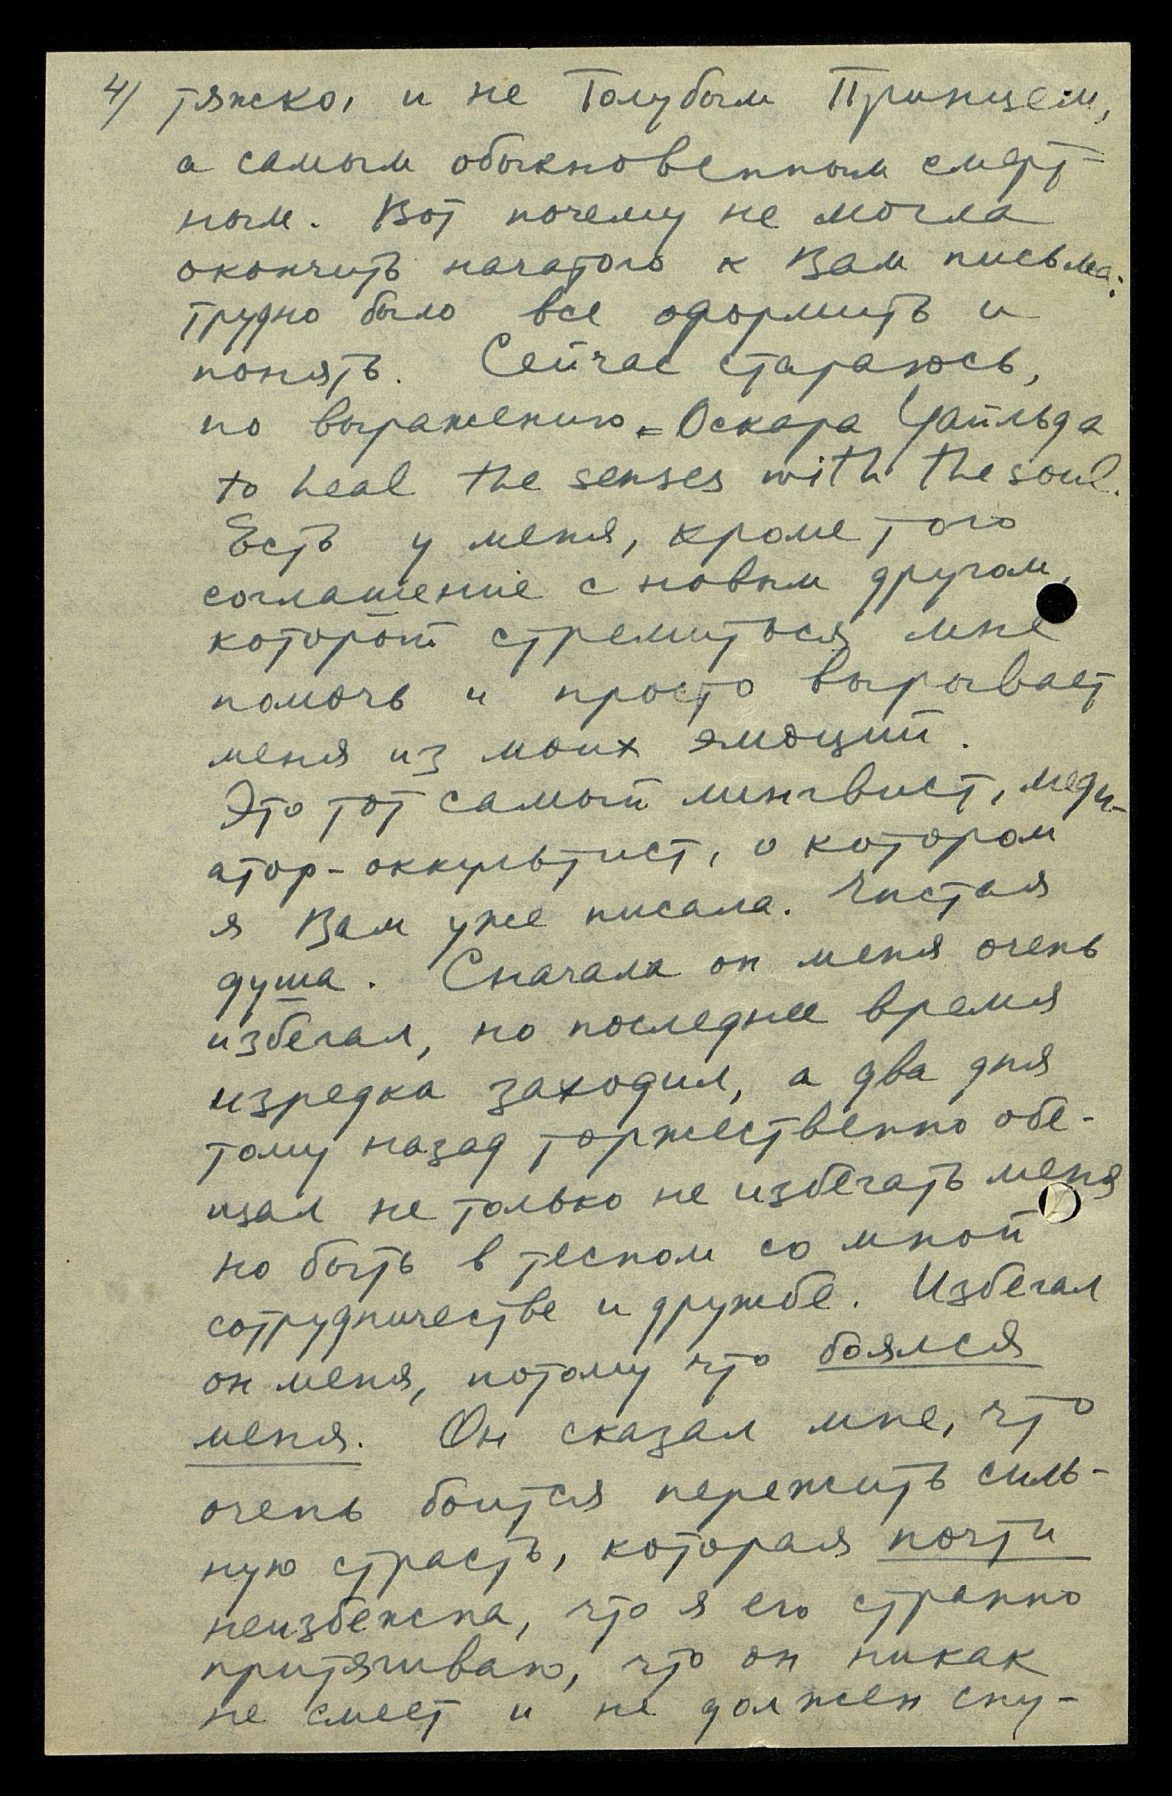 4/ тяжко, и не Голубым Принцем,
а самым обыкновенным смерт-
ным. Вот почему не могла
окончить начатого к Вам письма:
трудно было все оформить и
понять. Сейчас стараюсь,
по выражению Оскара Уайльда
to heal the senses with the soul.
Есть у меня, кроме того
соглашение с новым другом,
который стремиться мне
помочь и просто вырывает
меня из моих эмоций.
Это тот самый лингвист, меди-
атор-оккультист, о котором
я Вам уже писала. Чистая
душа. Сначала он меня очень
избегал, но последнее время
изредка заходил, а два дня
тому назад торжественно обе-
щал не только не избегать меня
но быть в тесном со мной
сотрудничестве и дружбе. Избегал
он меня, потому что боялся
меня. Он сказал мне, что
очень боится пережить силь-
ную страсть, которая почти
неизбежна, что я его странно
притягиваю, что он никак
не смеет и не должен спу-